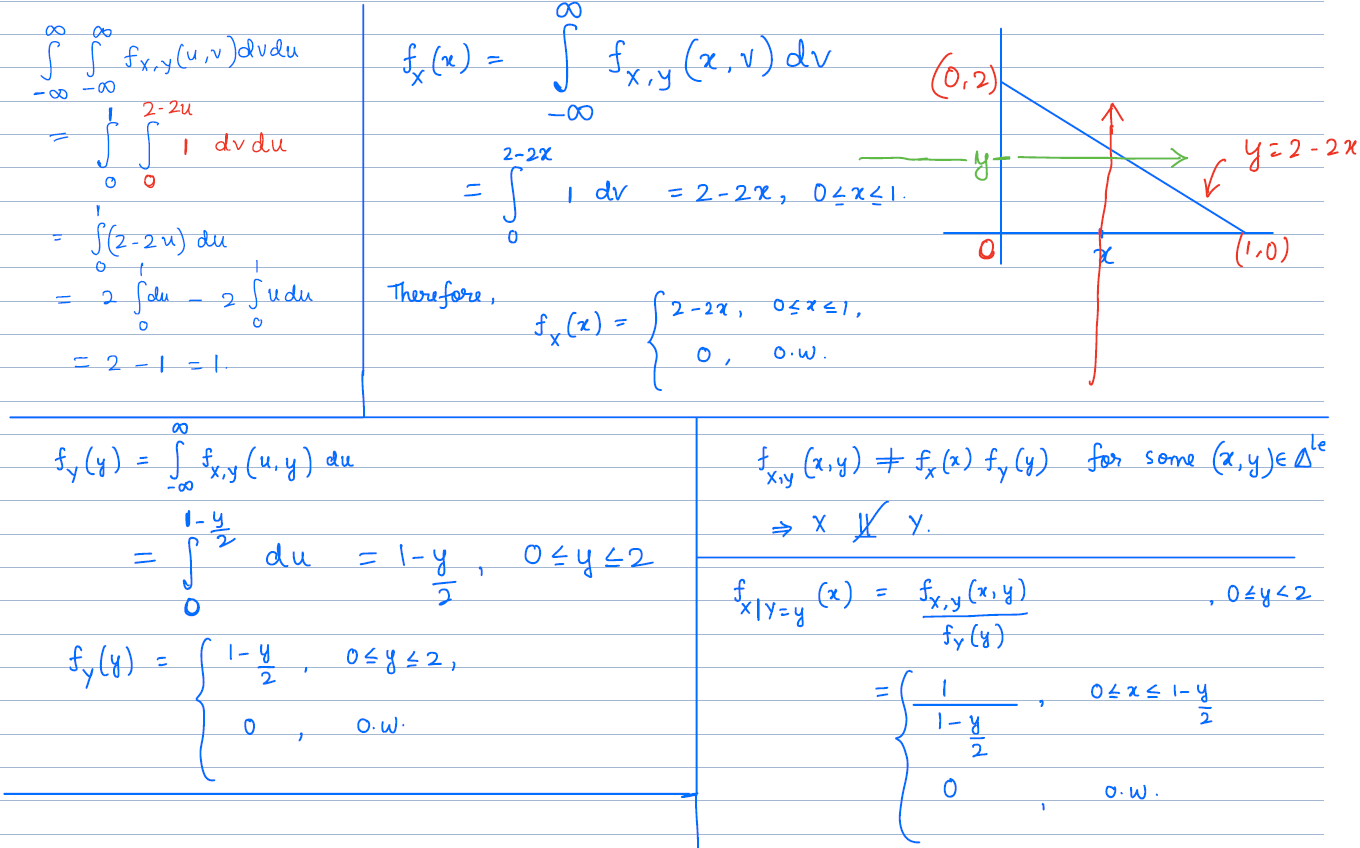 ∫_{-∞}^{∞} ∫_{-∞}^{∞} f_{X,Y}(u,v) dv du
= ∫_0^1 ∫_0^{2-2u} 1 dv du
= ∫_0^1 (2-2u) du
= 2 ∫_0^1 du - 2 ∫_0^1 u du
= 2 - 1 = 1.
f_X(x) = ∫_{-∞}^{∞} f_{X,Y}(x,v) dv
= ∫_0^{2-2x} 1 dv = 2-2x, 0≤x≤1.
Therefore,
f_X(x) = { 2-2x, 0≤x≤1,
0, o.w.
(0,2)
y
y=2-2x
0
x
(1,0)
f_Y(y) = ∫_{-∞}^{∞} f_{X,Y}(u,y) du
= ∫_0^{1-y/2} du = 1-y/2, 0≤y≤2
f_Y(y) = { 1-y/2, 0≤y≤2,
0, o.w.
f_{X,Y}(x,y) ≠ f_X(x) f_Y(y) for some (x,y)∈ Δ^{le}
⇒ X ⫫̸ Y.
f_{X|Y=y}(x) = f_{X,Y}(x,y)/f_Y(y), 0≤y<2
= { 1/(1-y/2), 0≤x≤1-y/2
0, o.w.